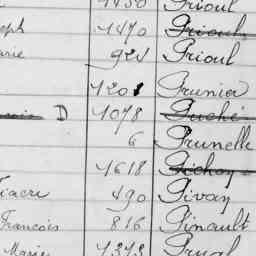 1450 Prioul
eph 1470 Prioul
arie 924 Prioul
1208 Prunier
D 1078 Guehé
6 Prunelle
1618 Pichon
iacre 490 Pivan
François 816 Pinault
Marie 1313 Prual